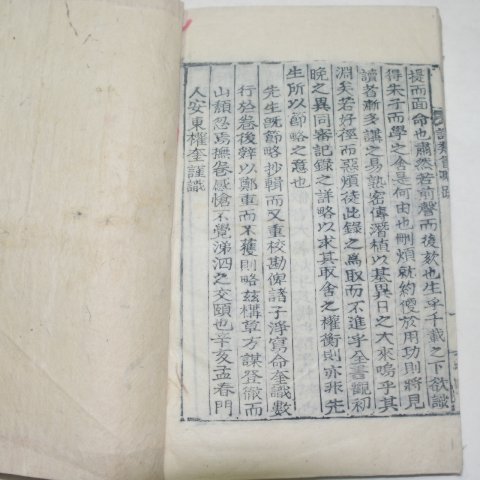 提而面命也肅然若前聲而後欬也生乎千載之下欲識
得朱子而學之舍是何由也刪煩就約便於用功則將見
讀者漸多講之易熟密傳潛植以基異日之大來嗚乎其
淵矣若好徑而惡煩徒此錄之爲取而不進乎全書觀初
晩之異同審記錄之詳略以求其取舍之權衡則亦非先
生所以節略之意也
先生旣節略抄輯而又重校勘俾諸子淨寫命奎識數
行於卷後辭以鄭重而不獲則略玆構草方謀登徹而
山頹忽焉撫卷感愴不覺涕泗之交頤也辛亥孟春門
人安東權奎謹識